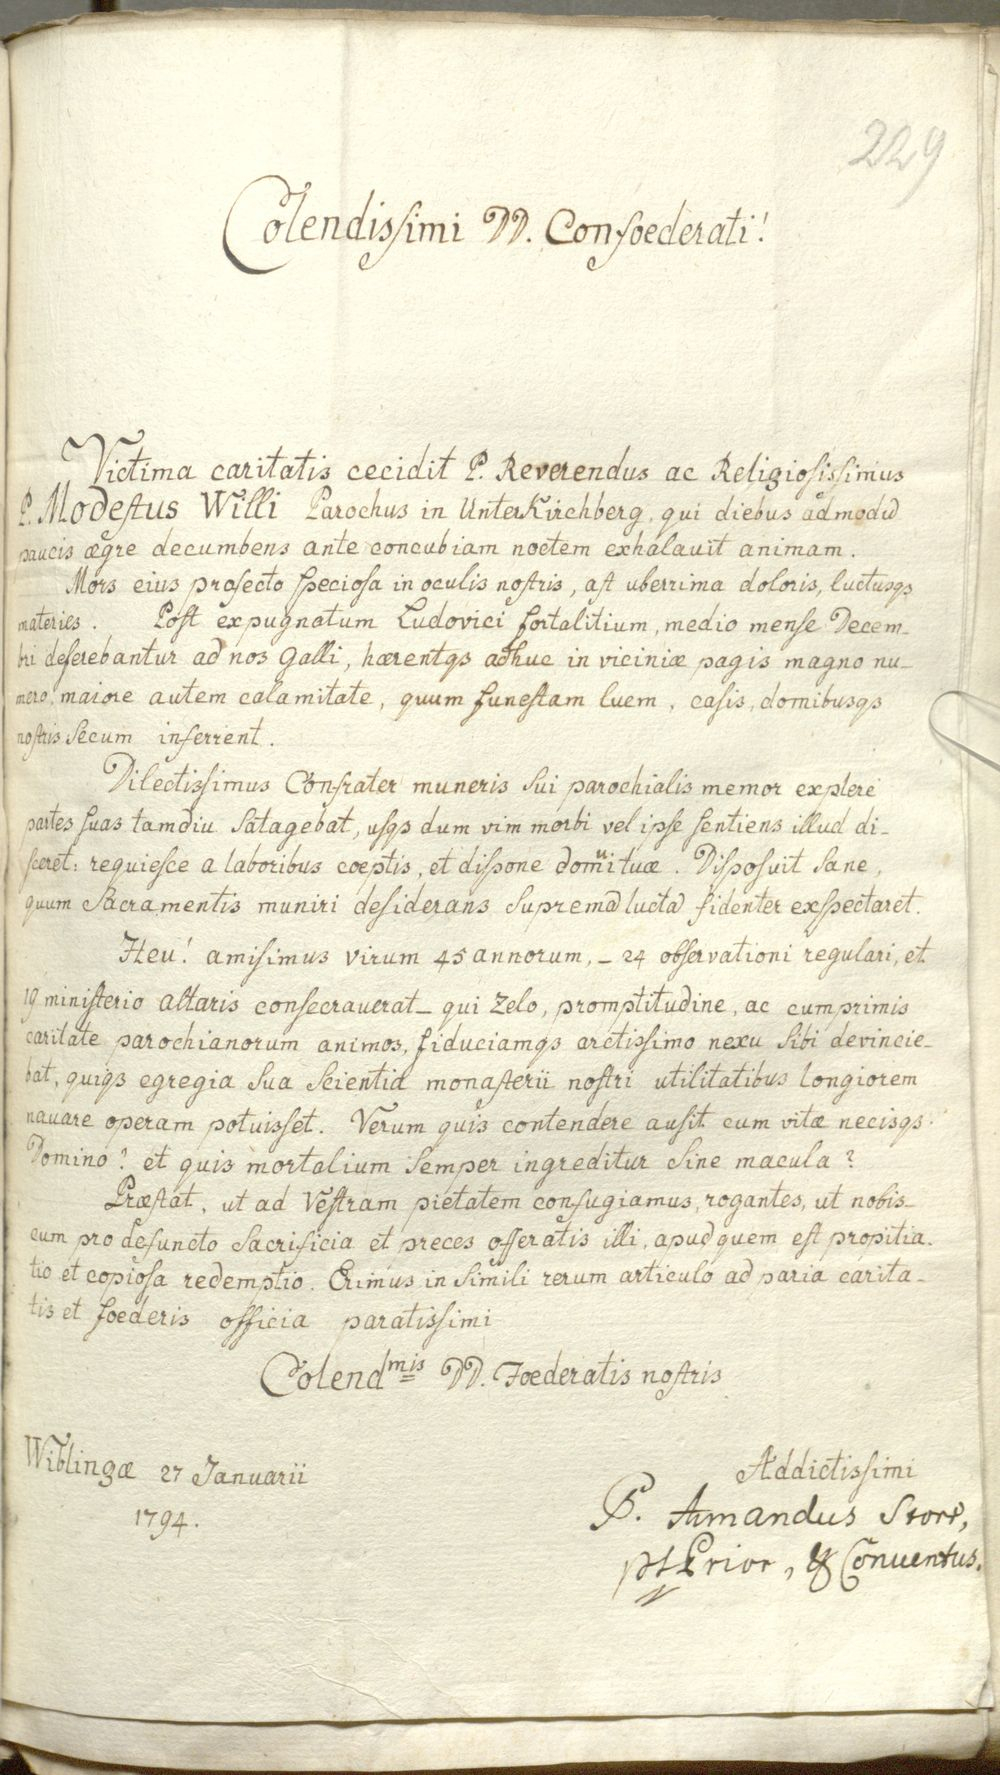 229
Colendissimi DD. Confoederati!
Victima caritatis cecidit P. Reverendus ac Religiosissimus
P. Modestus Willi Parochus in UnterKirchberg, qui diebus admodū
paucis ægre decumbens ante concubiam noctem exhalavit animam.
Mors eius profecto speciosa in oculis nostris, ast uberrima doloris, luctusqs
materies. Post expugnatum Ludovici fortalitium, medio mense Decem_
bri deferebantur ad nos Galli, hærentqs adhuc in viciniæ pagis magno nu_
mero, maiore autem calamitate, quum funestam luem, casis, domibusqs
nostris secum inferrent.
Dilectissimus Confrater muneris sui parochialis memor explere
partes suas tamdiu satagebat, usqs dum vim morbi vel ipse sentiens illud di_
sceret: requiesce a laboribus coeptis, et dispone domui tuæ. Disposuit sane,
quum Sacramentis muniri desiderans supremā luctā fidenter exspectaret.
Heu! amisimus virum 45 annorum, _ 24 observationi regulari, et
19 ministerio altaris consecraverat_ qui zelo, promptitudine, ac cumprimis
caritate parochianorum animos, fiduciamqs arctissimo nexu sibi devincie_
bat, quiqs egregia sua scientia monasterii nostri utilitatibus longiorem
navare operam potuisset. Verum quis contendere ausit cum vitæ necisqs
Domino? et quis mortalium semper ingreditur sine macula?
Præstat, ut ad Vestram pietatem confugiamus, rogantes, ut nobis_
cum pro defuncto Sacrificia et preces offeratis illi, apud quem est propitia_
tio et copiosa redemptio. Erimus in simili rerum articulo ad paria carita_
tis et foederis officia paratissimi
Colend<sup>mis</sup> DD. Foederatis nostris
Wiblingæ 27 Januarii
1794.
Addictissimi
P. Amandus Storr,
pt Prior, & Conventus.